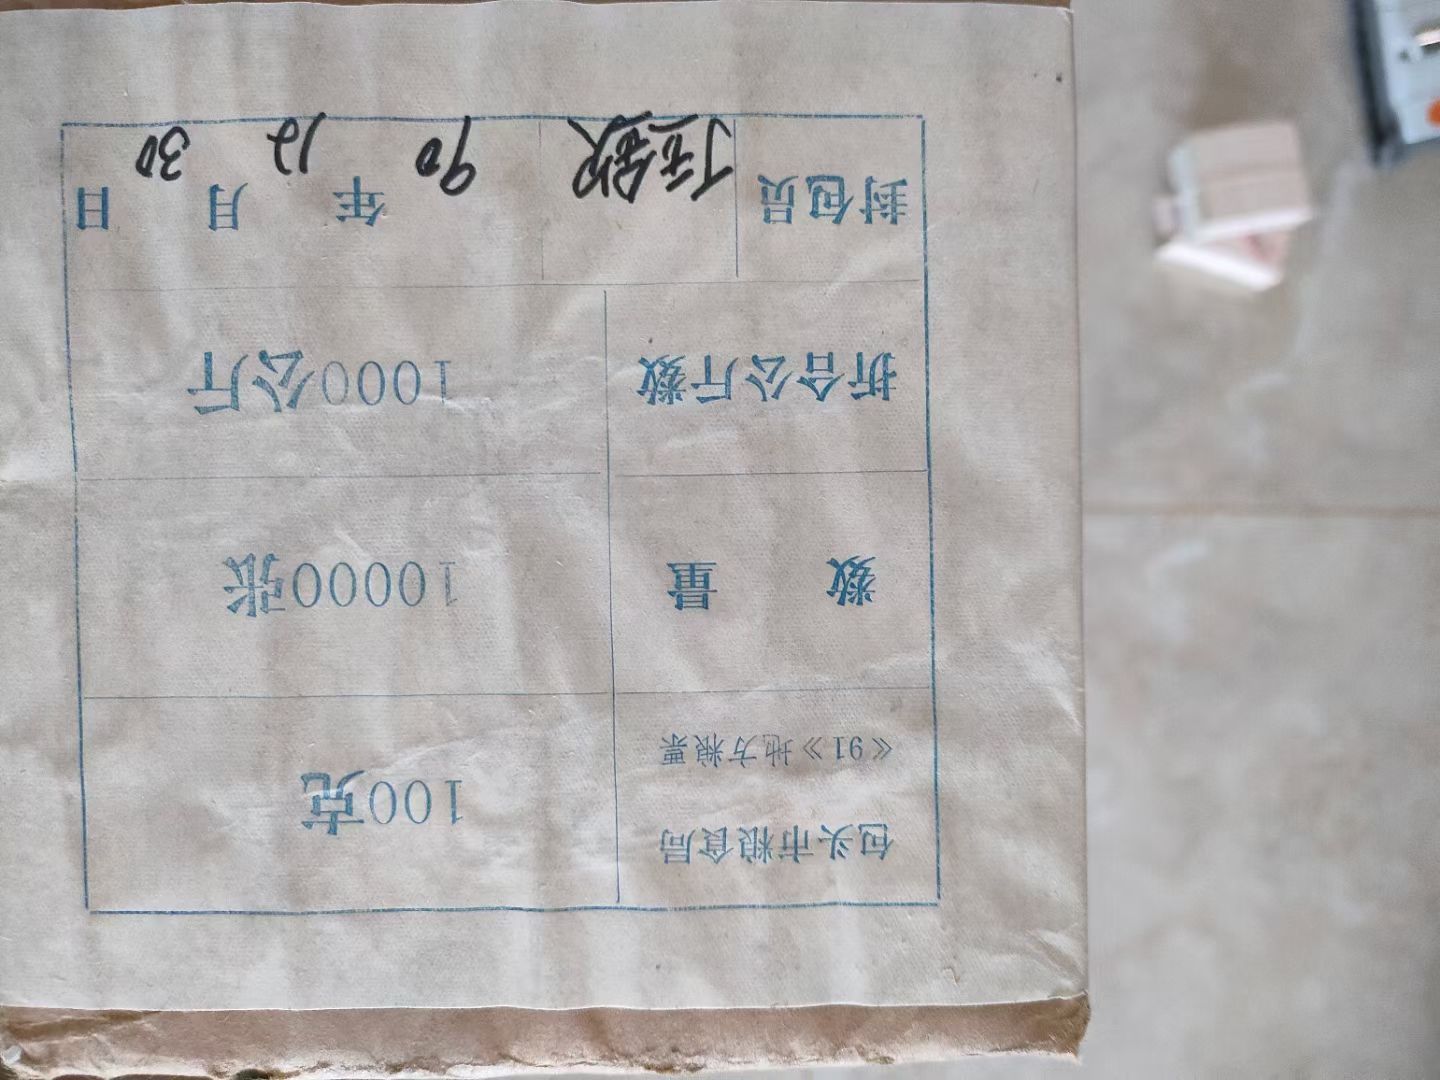 包头市粮食局
《91》地方粮票
100克
数 量
10000张
折合公斤数
1000公斤
封包员
90年12月30日